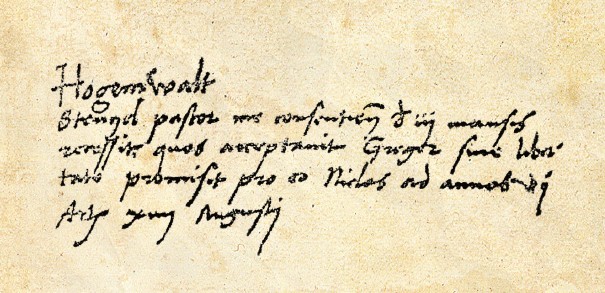 Hogenwalt
Stenzel pastor me consentien̄ d iij mansis
recessit quos acceptavit Greger sine liber
tate promisit pro eo Niclos ad annos vj
Act xviij Augusti